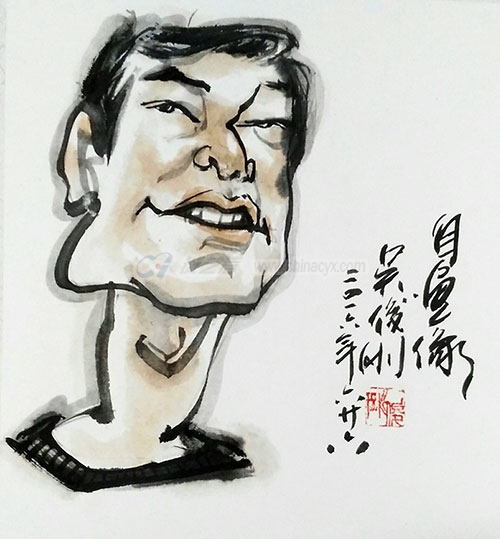 自畫像
吴俊刚
二〇一六年六廿六
www.chinacyx.com